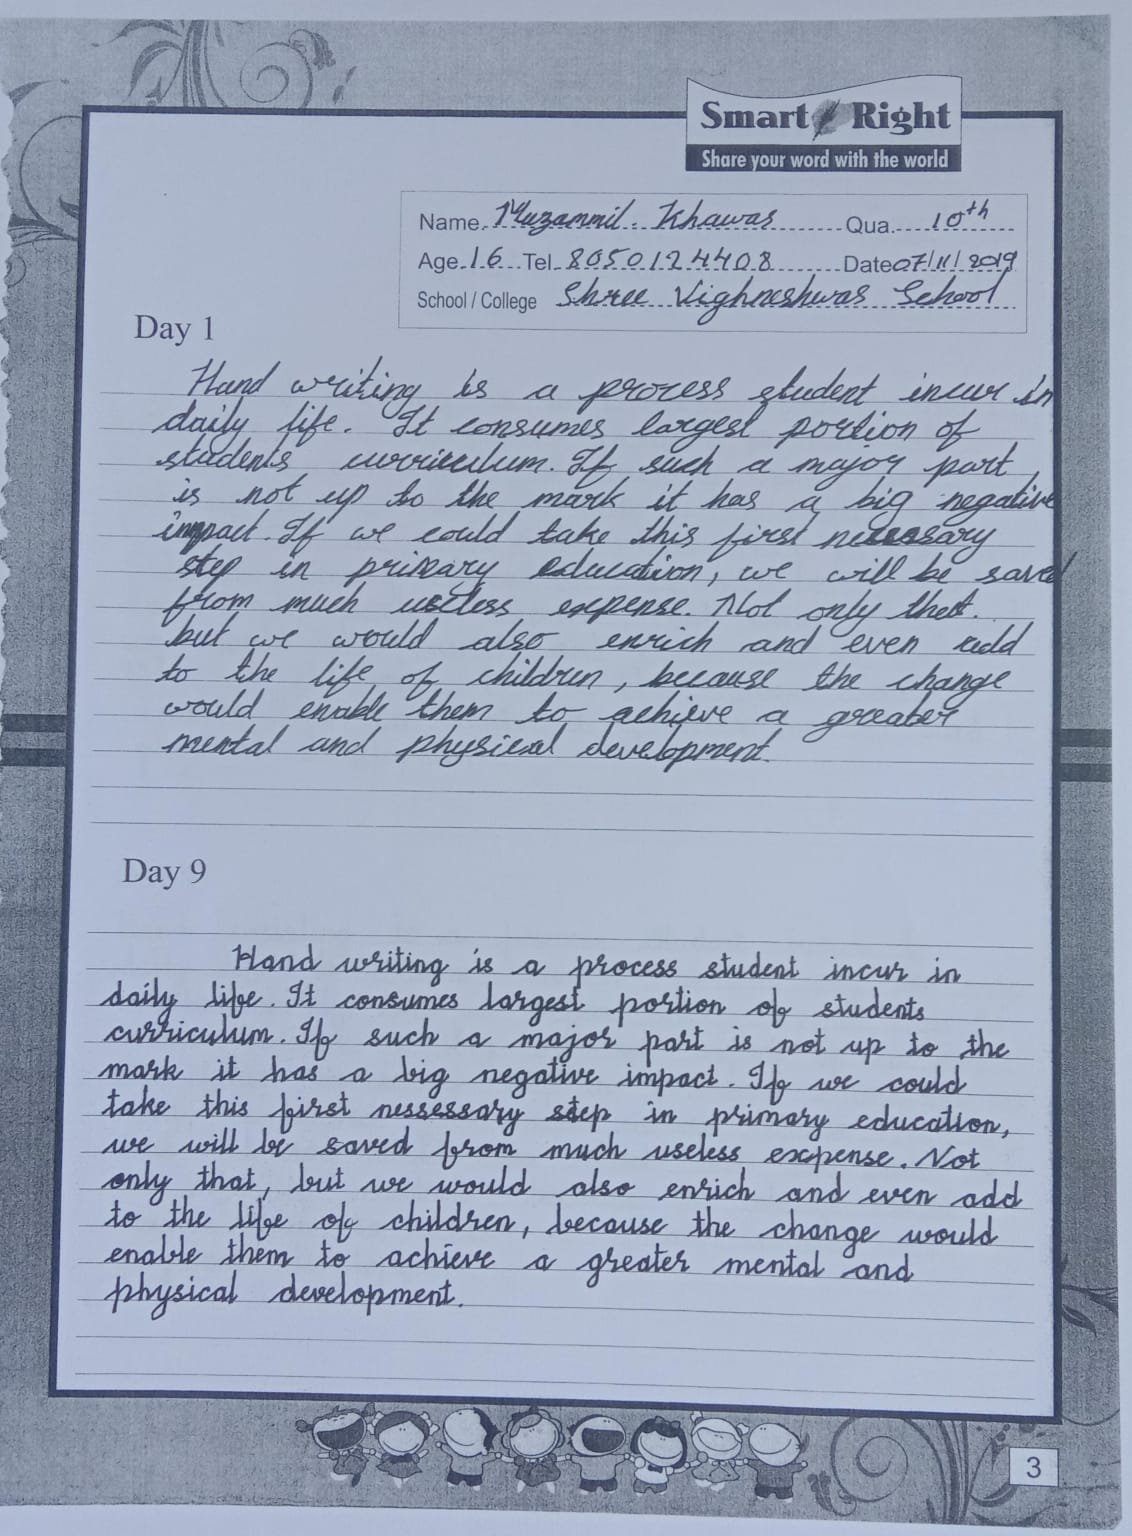 Smart Right
Share your word with the world
Name. Muzammil. Khawas Qua. 10th
Age. 16 Tel 8050124408 Date 07/11/2019
School / College Shree Vighneshwas School
Day 1
Hand writing is a process student incur in
daily life. It consumes largest portion of
students curriculum. If such a major part
is not up to the mark it has a big negative
impact. If we could take this first necessary
step in primary education, we will be saved
from much useless expense. Not only that.
but we would also enrich and even add
to the life of children, because the change
would enable them to achieve a greater
mental and physical development.
Day 9
Hand writing is a process student incur in
daily life. It consumes largest portion of students
curriculum. If such a major part is not up to the
mark it has a big negative impact. If we could
take this first nessessary step in primary education,
we will be saved from much useless expense. Not
only that, but we would also enrich and even add
to the life of children, because the change would
enable them to achieve a greater mental and
physical development.
3